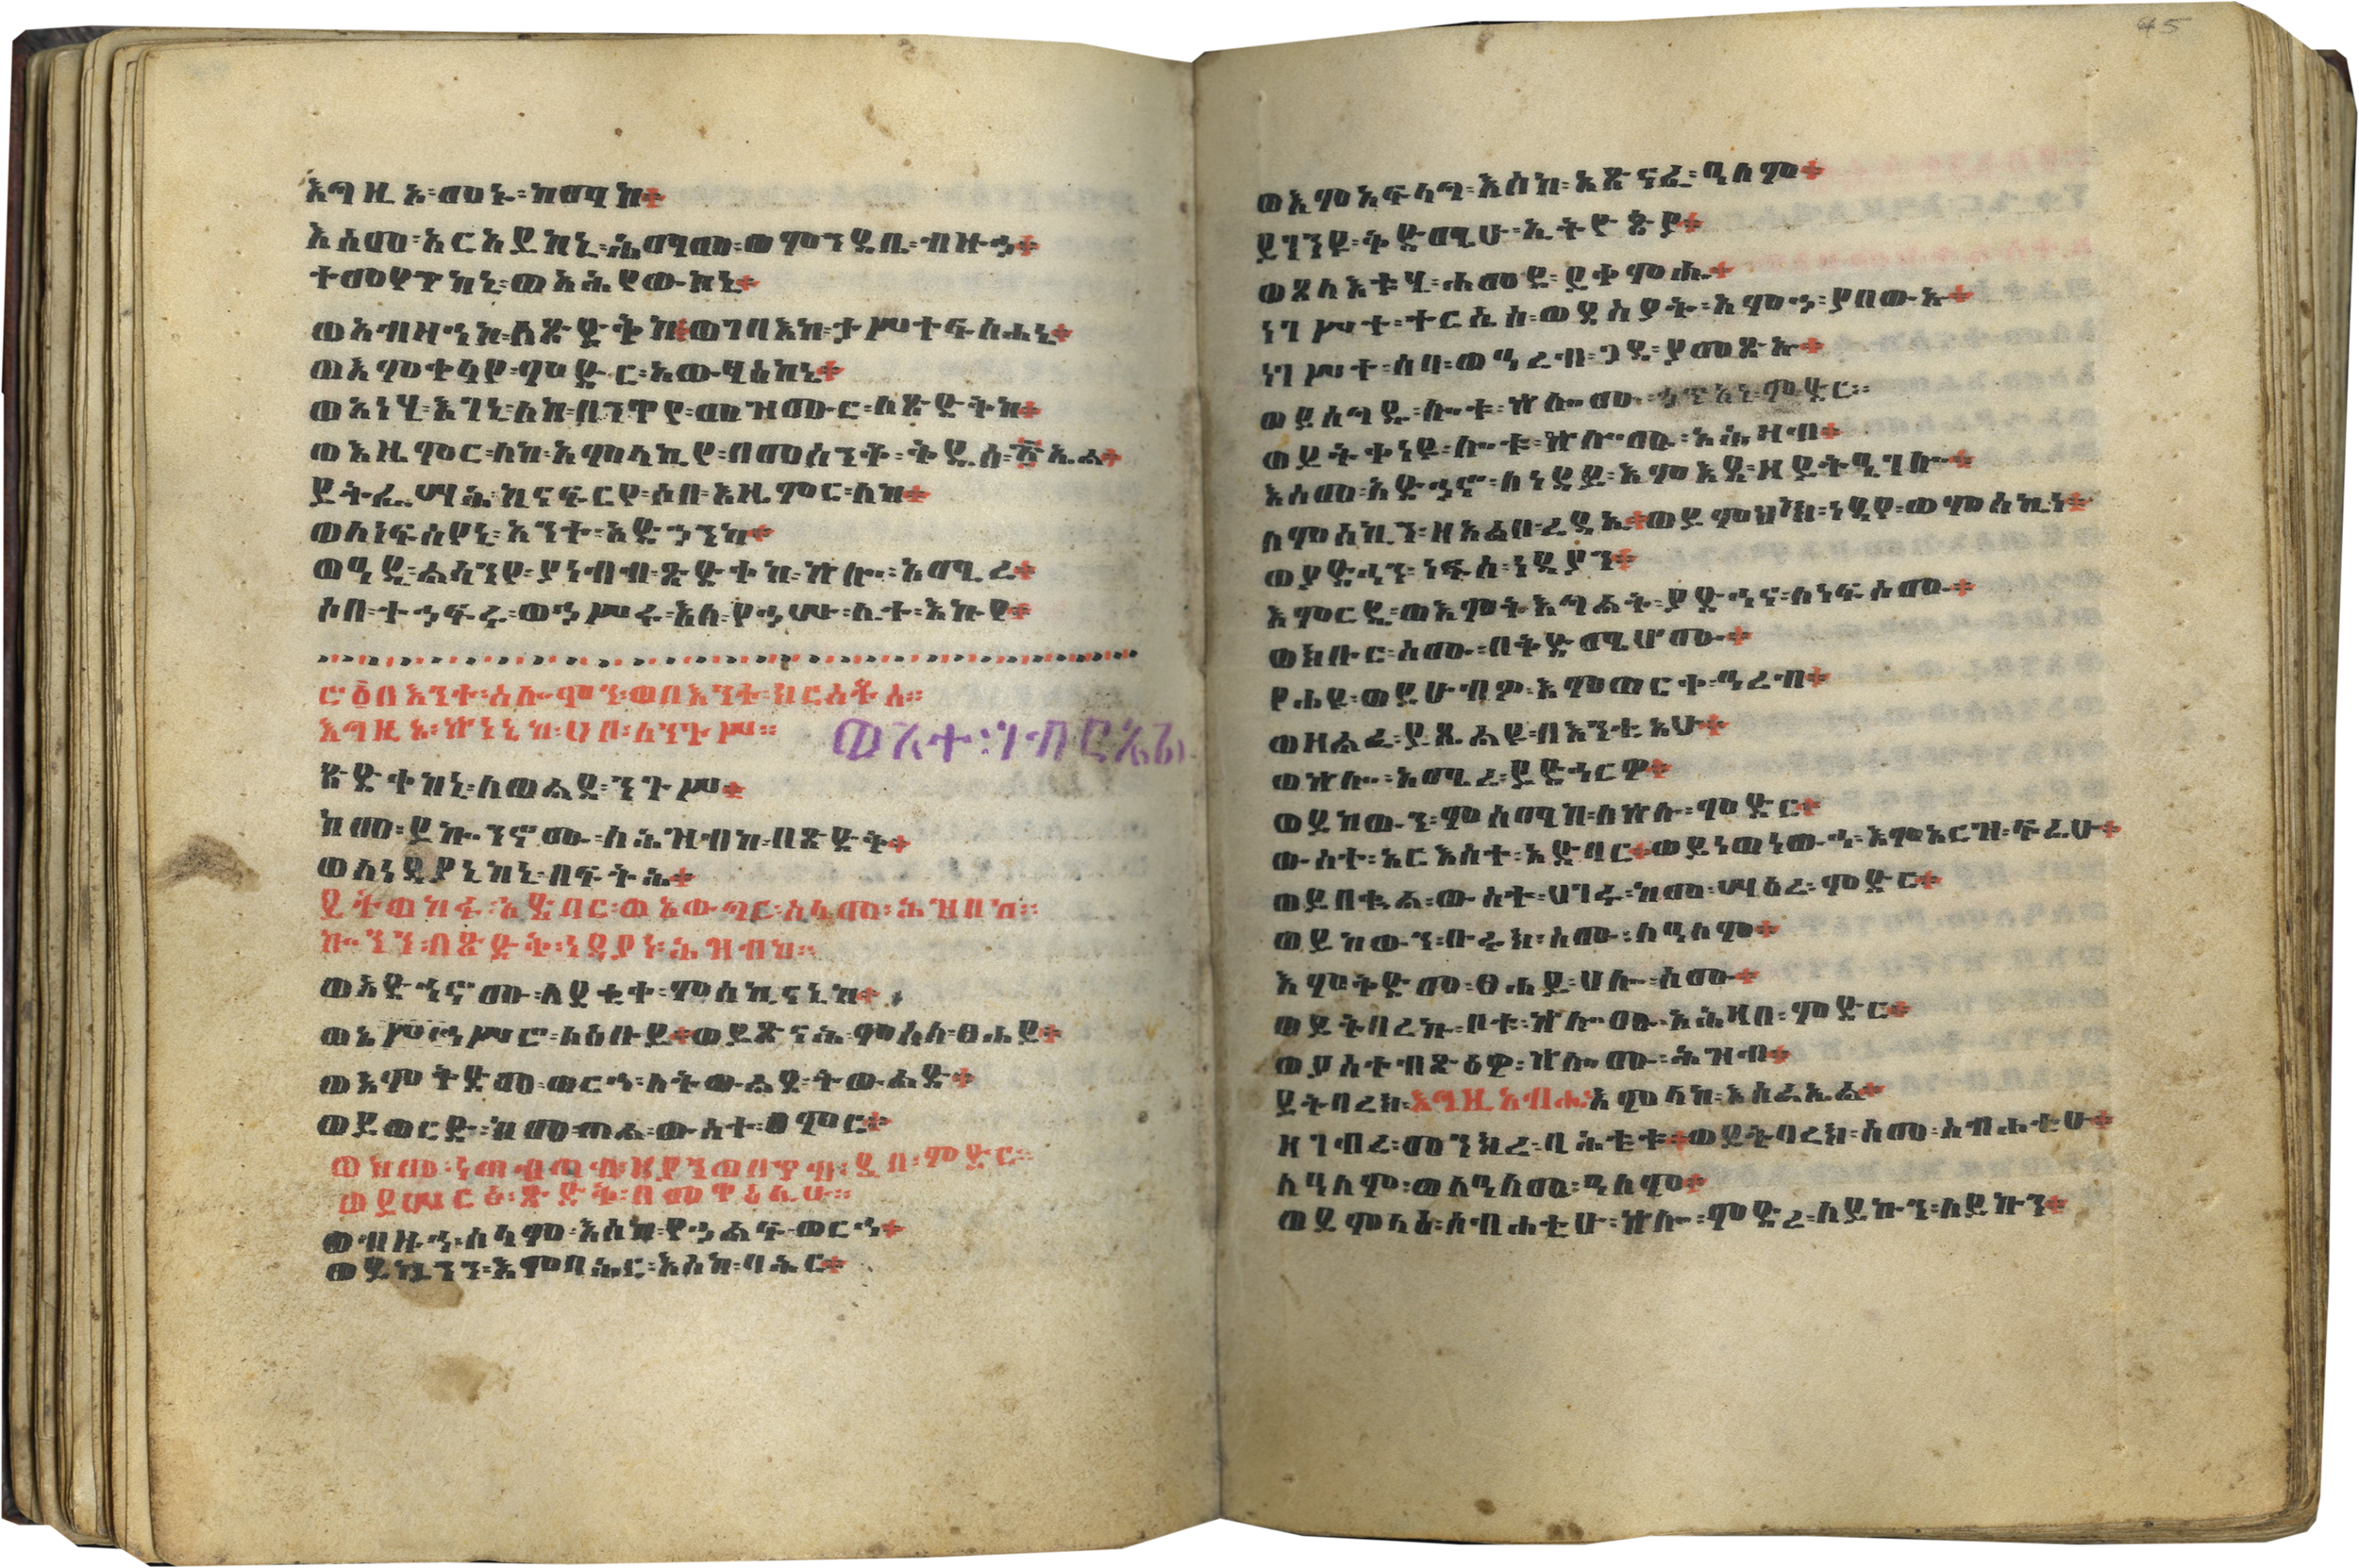 እግዚኦ፡መኑ፡ከማከ።
እስመ፡አርአይከኒ፡ሕማመ፡ወምንዳቤ፡ብዙኀ።
ተመየጥከኒ፡ወአሕየውከኒ።
ወአብዛኅኮ፡ለጽድቅከ።ወገባእከ፡ታሥተፍስሐኒ።
ወእምቀላየ፡ምድር፡አውፃእከኒ።
ወአነሂ፡እገኒ፡ለከ፡በንዋየ፡መዝሙር፡ለጽድቅከ።
ወእዜምር፡ለከ፡አምላኪየ፡በመሰንቆ፡ቅዱሰ፡፳ኤል።
ይትፌሣሕ፡ከናፍርየ፡ሶበ፡እዜምር፡ለከ።
ወለነፍስየኒ፡እንተ፡አድኀንከ።
ወዓዲ፡ልሳንየ፡ያነብብ፡ጽድቀከ፡ኵሎ፡አሚረ።
ሶበ፡ተኀፍሩ፡ወኀሥሩ፡እለ፡የኀሡ፡ሊተ፡እኩየ።
በእንተ፡ሰሎሞን፡ወበእንተ፡ክርስቶስ።
እግዚኦ፡ኵነኔከ፡ሀቦ፡ለንጉሥ።
ጽድቀከኒ፡ለወልደ፡ንጉሥ።
ከመ፡ይኰንኖሙ፡ለሕዝብከ፡በጽድቅ።
ወለነዳያኒከኒ፡በፍትሕ።
ይትወከፉ፡አድባር፡ወአውግር፡ሰላመ፡ሕዝበከ።
ኰንን፡በጽድቅ፡ነዳያነ፡ሕዝብከ።
ወአድኅኖሙ፡ለደቂቀ፡ምስኪናኒከ።
ወአኅሥሮ፡ለዕቡይ።ወይጸንሕ፡ምስለ፡ፀሐይ።
ወእምቅድመ፡ወርኅ፡ለትውልደ፡ትውልድ።
ወይወርድ፡ከመ፡ጠል፡ውስተ፡ፀምር።
ወከመ፡ነጠብጣብ፡ዘያንጠበጥብ፡ዲበ፡ምድር።
ወይሠርፅ፡ጽድቅ፡በመዋዕሊሁ።
ወብዙኅ፡ሰላም፡እስከ፡የኀልፍ፡ወርኅ።
ወይኴንን፡እምባሕር፡እስከ፡ባሕር።
ወእምአፍላግ፡እስከ፡አጽናፈ፡ዓለም።
ይገንዩ፡ቅድሜሁ፡ኢትዮጵያ።
ወጸላእቱሂ፡ሐመደ፡ይቀምሑ።
ነገሥተ፡ተርሴስ፡ወደሰያት፡አምኃ፡ያበውኡ።
ነገሥተ፡ሳባ፡ወዓረብ፡ጋዳ፡ያመጽኡ።
ወይሰግዱ፡ሎቱ፡ኵሎሙ፡ነገሥተ፡ምድር።
ወይትቀነዩ፡ሎቱ፡ኵሎሙ፡አሕዛብ።
እስመ፡አድኀኖ፡ለነዳይ፡እምእደ፡ዘይትዔገሎ።
ለምስኪን፡ዘአልቦ፡ረዳኢ።ወይምህክ፡ነዳየ፡ወምስኪነ።
ወያድኅን፡ነፍሰ፡ነዳያን።
እምርዴ፡ወእምትእግልት፡ያድኅና፡ለነፍሶሙ።
ወክቡር፡ስሙ፡በቅድሜሆሙ።
የሐዩ፡ወይሁብዎ፡እምወርቀ፡ዓረብ።
ወዘልፈ፡ይጼልዩ፡በእንቲአሁ።
ወኵሎ፡አሚረ፡ይድኅርዎ።
ወይከውን፡ምስማከ፡ለኵሉ፡ምድር።
ውስተ፡አርእስተ፡አድባር።ወይነውኅ፡እምአርዝ፡ፍሬሁ።
ወይበቍል፡ውስተ፡ሀገር፡ከመ፡ሣዕረ፡ምድር።
ወይከውን፡ቡሩከ፡ስሙ፡ለዓለም።
እምቅድመ፡ፀሐይ፡ሀሎ፡ስሙ።
ወይትባረኩ፡ቦቱ፡ኵሎሙ፡አሕዛበ፡ምድር።
ወያስተብፅዕዎ፡ኵሎሙ፡ሕዝብ።
ይትባረክ፡እግዚአብሔር፡አምላከ፡እስራኤል።
ዘገብረ፡መንክረ፡ባሕቲቱ።ወይትባረክ፡ስመ፡ስብሐቲሁ።
ለዓለም፡ወለዓለመ፡ዓለም።
ወይምላእ፡ስብሐቲሁ፡ኵሎ፡ምድረ፡ለይኩን፡ለይኩን።